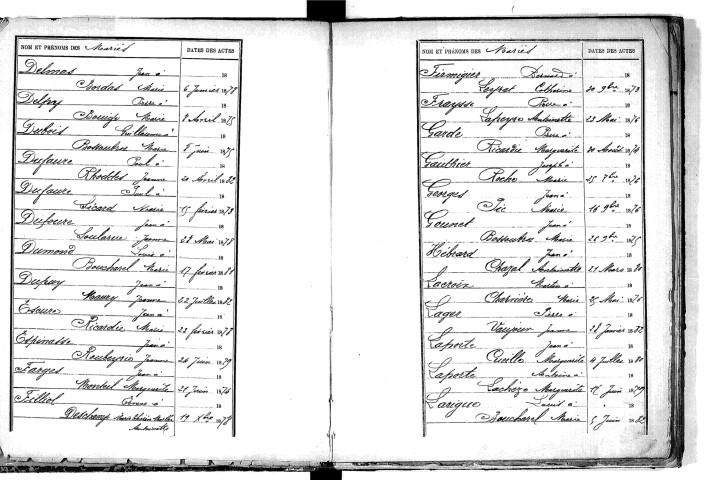 NOM ET PRÉNOMS DES Mariés DATES DES ACTES
Delmas Jean à 18
Bordas Marie 6 Janvier 1878
Delpy Pierre à 18
Marie 8 Avril 1875
Dubois Guillaume à 18
Marie 8 Juin 1875
Dufaure Paul à 18
Jeanne 20 Avril 1882
Dufaure Paul à 18
Sicard Marie 15 février 1873
Dufoure Jean à 18
Soularue Jeanne 28 Mai 1878
Dumond Louis à 18
Boucharel Marie 17 février 1881
Dupuy Jean à 18
Maury Jeanne 22 Juillet 1882
Escure Jean à 18
Ricardie Marie 22 février 1878
Espinasse Jean à 18
Roubeyrie Jeanne 24 Juin 1879
Farges Jean à 18
Monteil Marguerite 21 Juin 1876
Filliol à 18
Deschamp Marie 19 Xbre 1878
Antoinette
NOM ET PRÉNOMS DES Mariés DATES DES ACTES
Firmigier Bernard à 18
Leyrat Catherine 20 9bre 1873
Fraysse Pierre à 18
Lapeyre Antoinette 23 Mai 1876
Garde Pierre à 18
Ricardie Marguerite 20 Août 1874
Gauthier Joseph à 18
Roche Marie 25 7bre 1876
Georges Jean à 18
Pic Marie 16 9bre 1876
Gounet Jean à 18
Marie 28 9bre 1875
Hébrard Jean à 18
Chazal Antoinette 21 Mars 1880
Lacroix Martin à 18
Charvière Marie 25 Mai 1876
Lager Pierre à 18
Jeanne 28 Janvier 1882
Laporte Jean à 18
Cueille Marguerite 4 Juillet 1880
Laporte Antoine à 18
Lachèze Marguerite 15 Juin 1879
Larigue Louis à 18
Boucharel Marie 5 Juin 1882